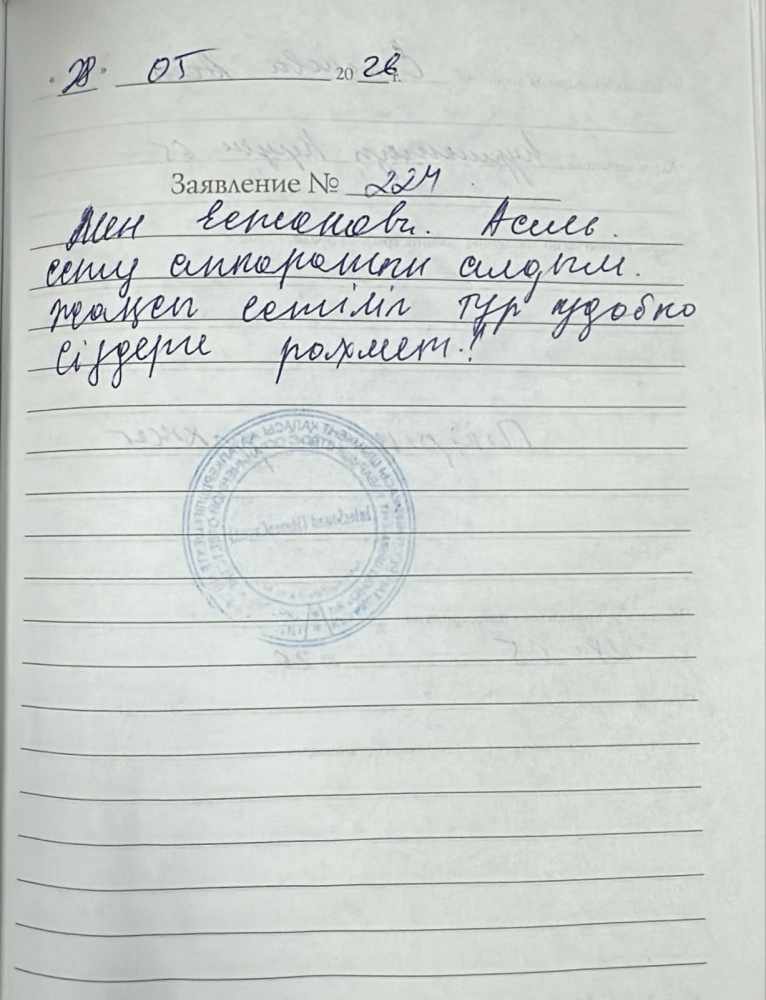 "28" 05 2026 г.
Заявление № 224
Мен Естанова. Асель.
есту аппаратын алдым.
жақсы естіліп тур удобно
сіздерге рахмет.!